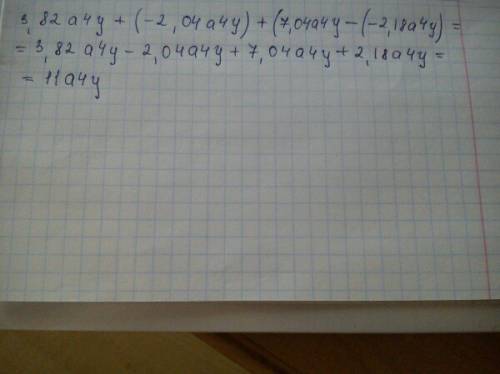 3,82a4y + (-2,04a4y) + (7,04a4y - (-2,18a4y) =
= 3,82a4y - 2,04a4y + 7,04a4y + 2,18a4y =
= 11a4y